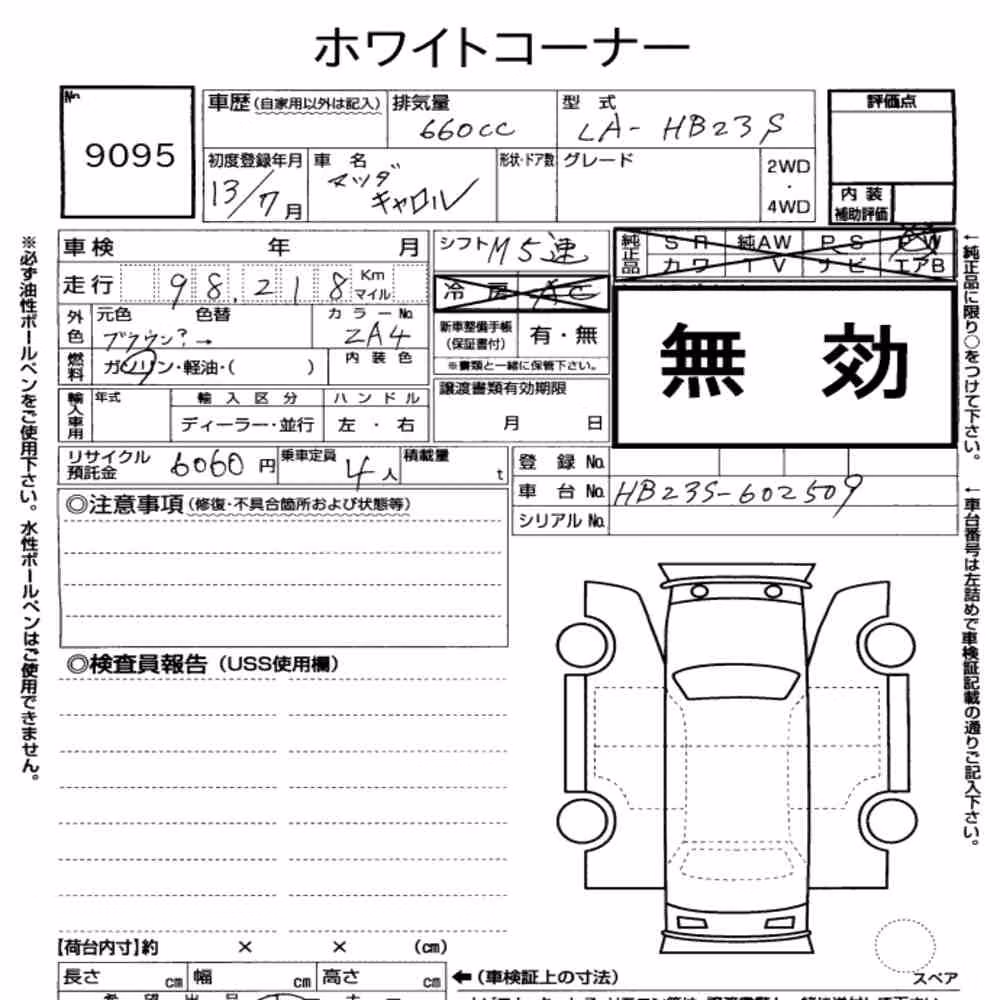 ホワイトコーナー
No. 9095
車歴(自家用以外は記入) 排気量 660cc 型式 LA-HB23S
評価点
初度登録年月 13/7月 車名 マツダ キャロル 形状・ドア数 グレード 2WD・4WD
内装補助評価
車検 年 月
シフト M5速
純正品 SR 純AW PS PW
カワ TV ナビ エアB
走行 98,218 Km マイル
冷房 AC
外色 元色 色替 カラーNo.
ブラウン?→ ZA4
新車整備手帳(保証書付) 有・無
※書類と一緒に保管下さい。
無効
燃料 ガソリン・軽油・( ) 内装色
譲渡書類有効期限
月 日
輸入車用 年式 輸入区分 ハンドル
ディーラー・並行 左・右
リサイクル預託金 6060円 乗車定員 4人 積載量 t
登録No.
車台No. HB23S-602509
シリアルNo.
◎注意事項(修復・不具合箇所および状態等)
◎検査員報告(USS使用欄)
【荷台内寸】約 × × (cm)
長さ cm 幅 cm 高さ cm ←(車検証上の寸法)
スペア
※必ず油性ボールペンをご使用下さい。水性ボールペンはご使用できません。
←純正品に限り○をつけて下さい。
←車台番号は左詰めで車検証記載の通りご記入下さい。